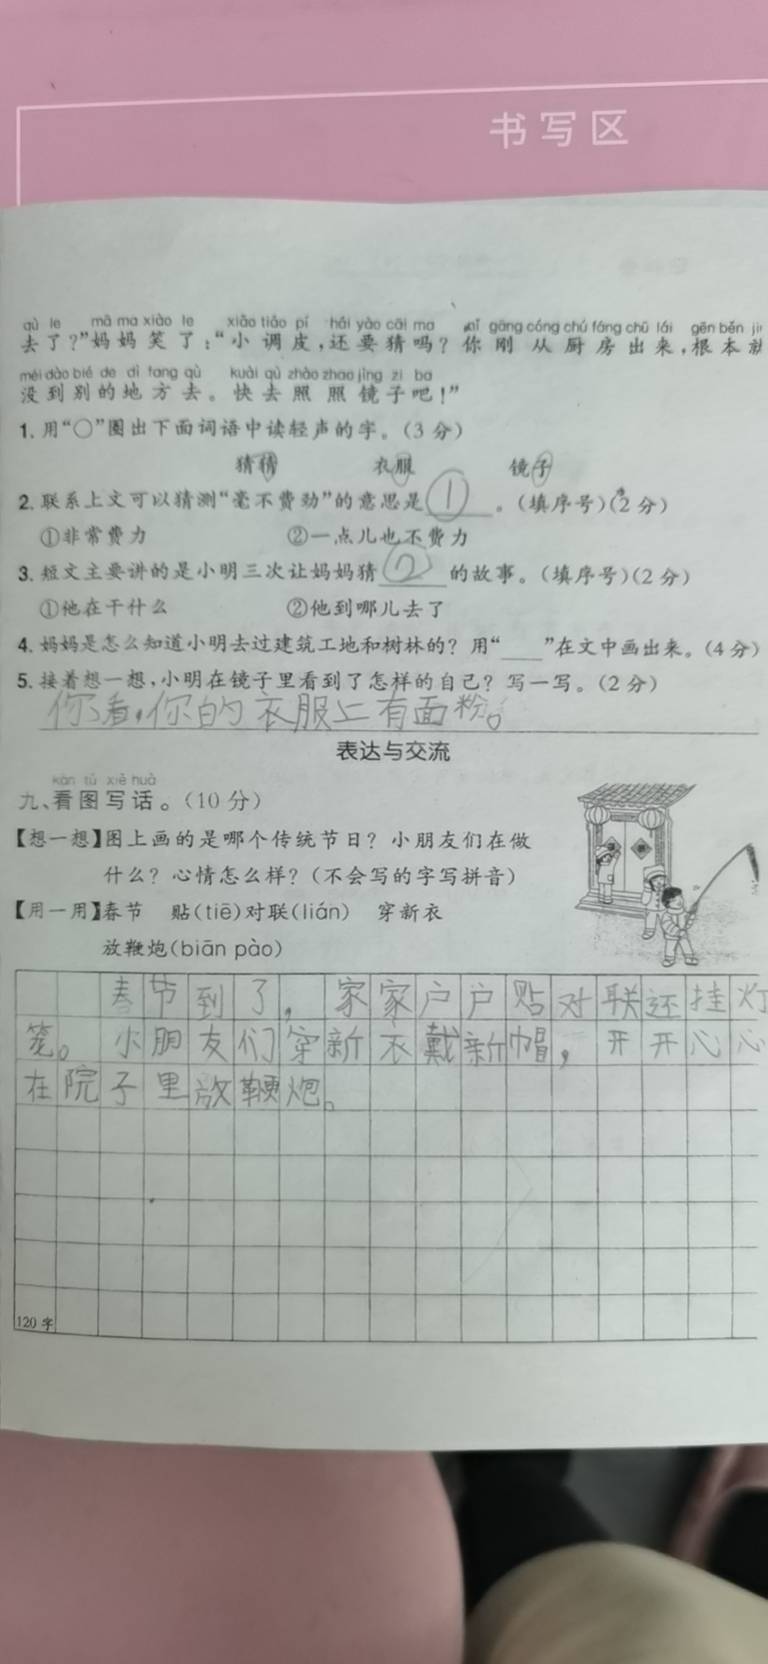 书写区
qù le mā ma xiào le xiǎo tiáo pí hái yào cāi ma nǐ gāng cóng chú fáng chū lái gēn běn jiù
去了？”妈妈笑了：“小调皮，还要猜吗？你刚从厨房出来，根本就
méi dào bié de dì fang qù kuài qù zhào zhao jìng zi ba
没到别的地方去。快去照照镜子吧！”
1. 用“○”圈出下面词语中读轻声的字。（3分）
猜猜 衣服 镜子
2. 联系上文可以猜测“毫不费劲”的意思是①。（填序号）（2分）
①非常费力 ②一点儿也不费力
3. 短文主要讲的是小明三次让妈妈猜②的故事。（填序号）（2分）
①他在干什么 ②他到哪儿去了
4. 妈妈是怎么知道小明去过建筑工地和树林的？用“___”在文中画出来。（4分）
5. 接着想一想，小明在镜子里看到了怎样的自己？写一写。（2分）
你看，你的衣服上有面粉。
表达与交流
kàn tú xiě huà
九、看图写话。（10分）
【想一想】图上画的是哪个传统节日？小朋友们在做
什么？心情怎么样？（不会写的字写拼音）
【用一用】春节 贴（tiē）对联（lián） 穿新衣
放鞭炮（biān pào）
春节到了，家家户户贴对联还挂灯
笼。小朋友们穿新衣戴新帽，开开心心
在院子里放鞭炮。
120字